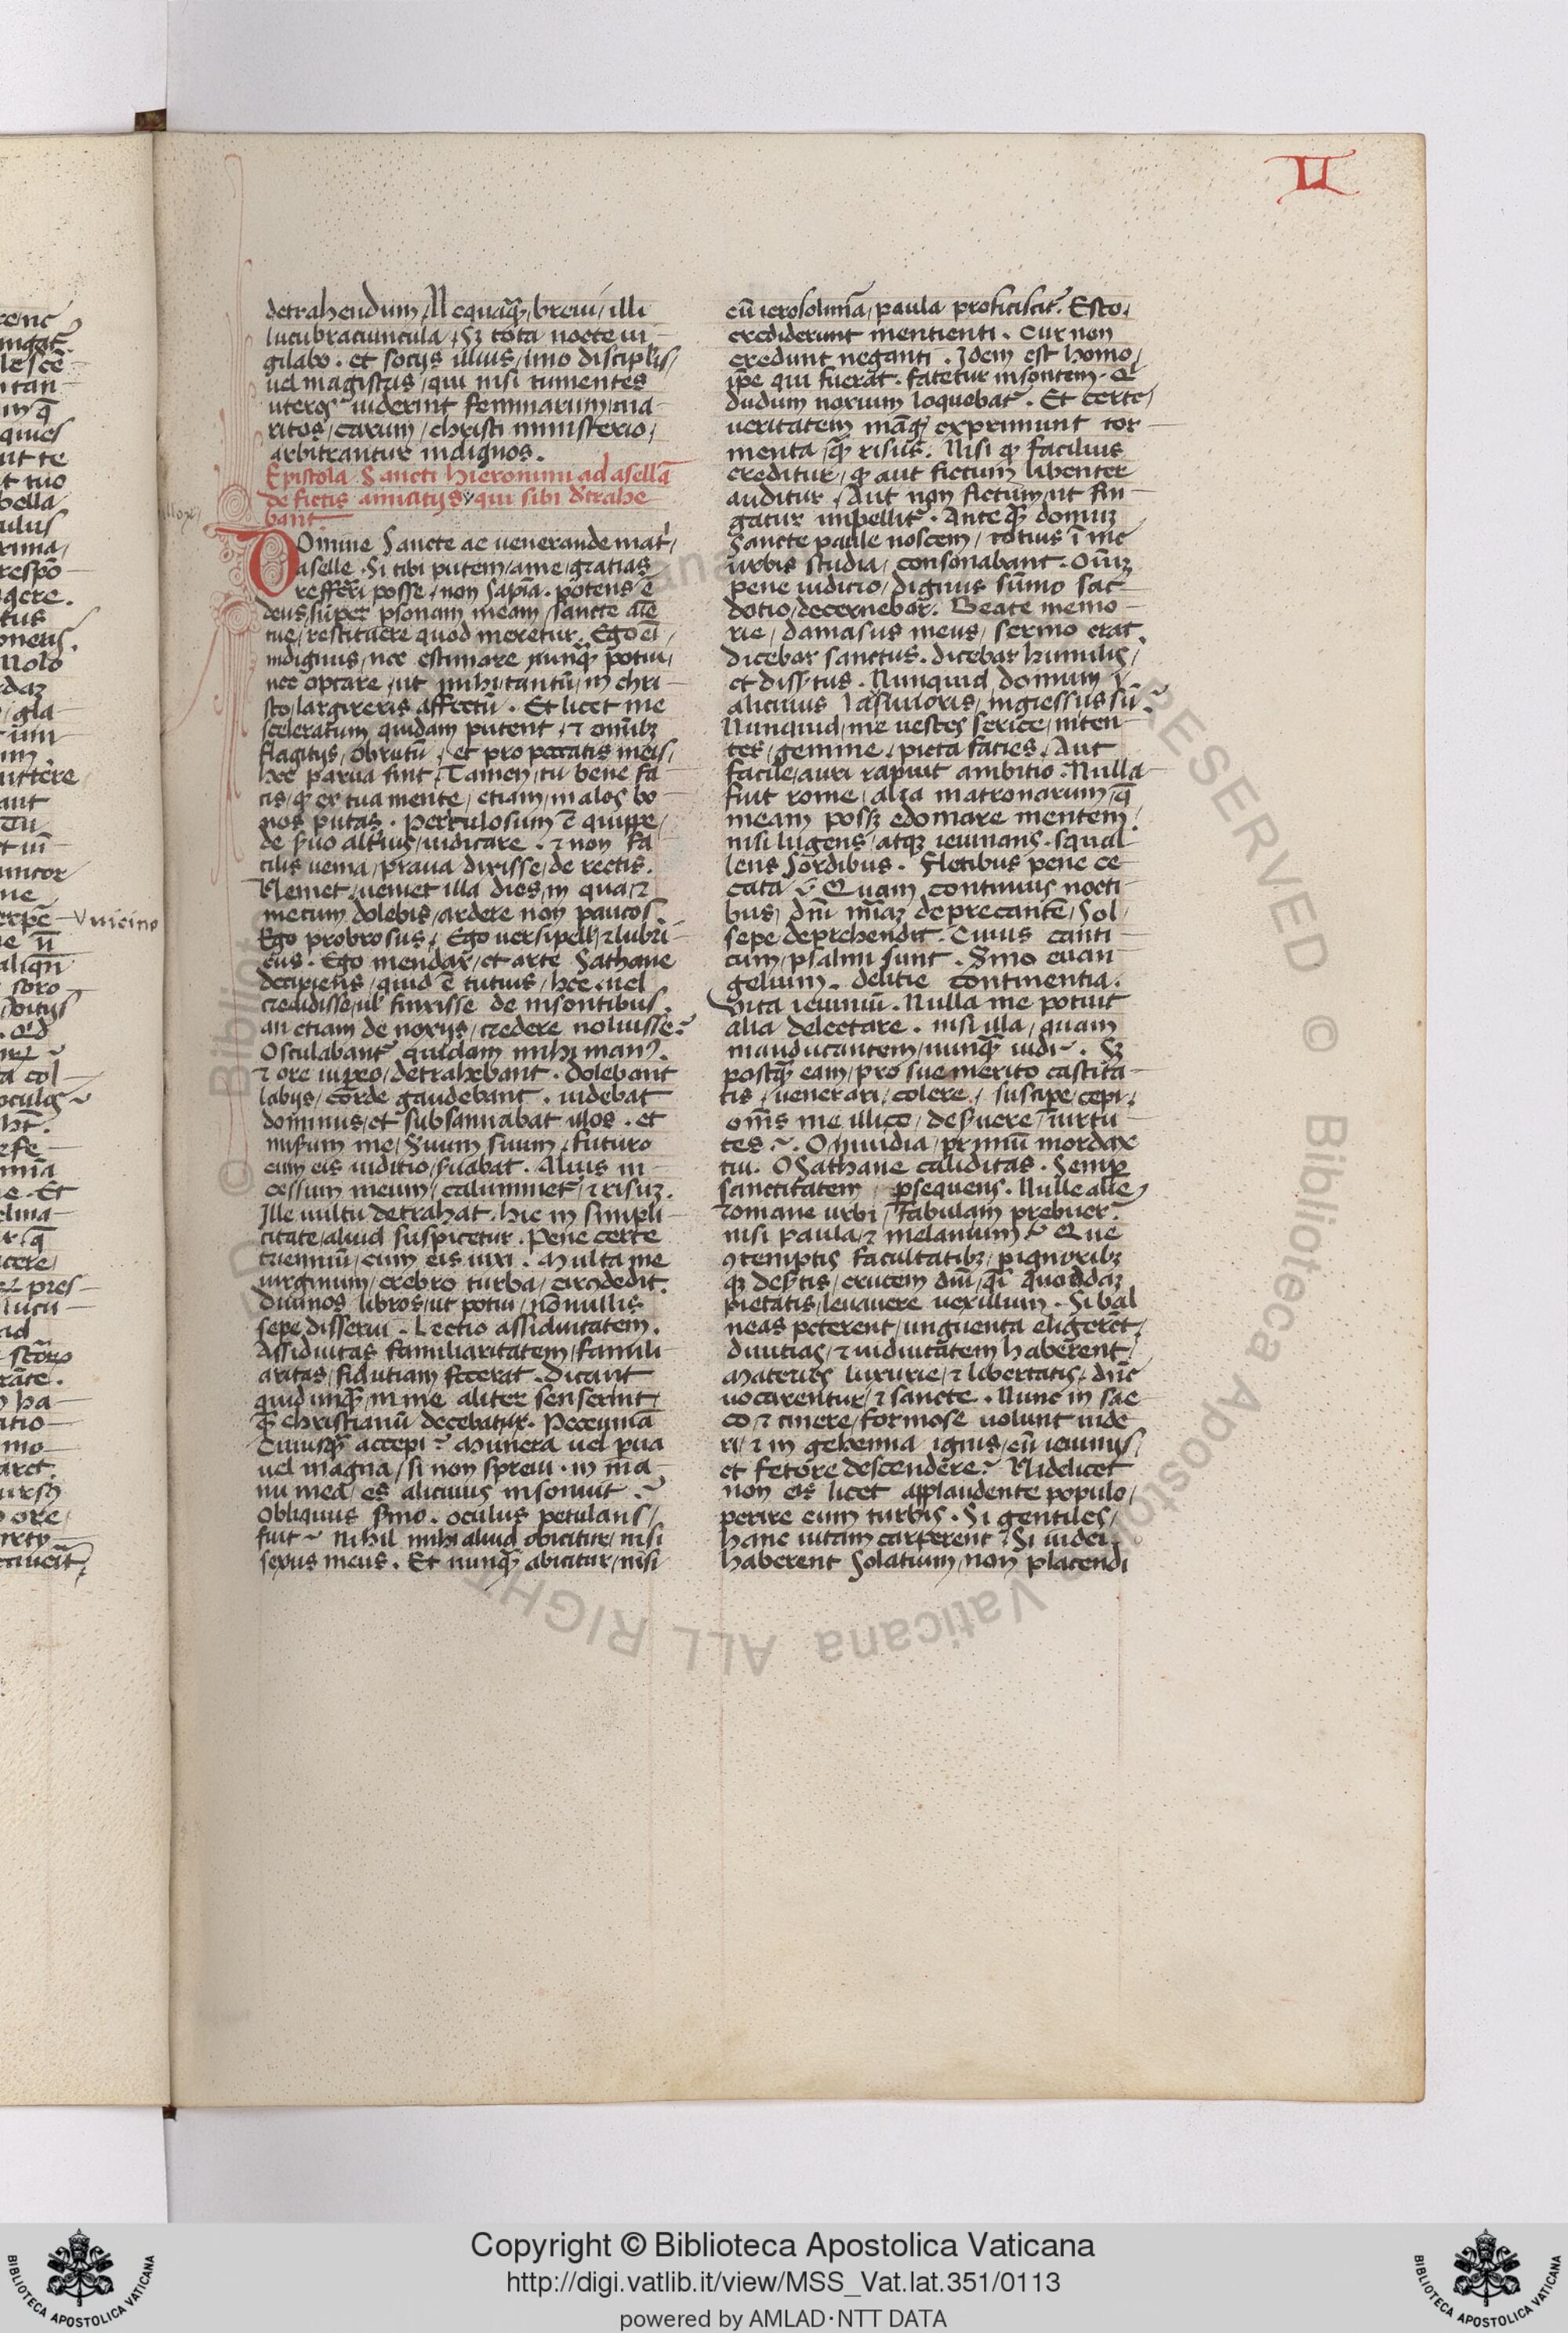 II
detrahendum / Nequaq̃ / breui / illi
lucubraciuncula / Sz tota nocte ui-
gilabo . et socijs illius / imo discipl̃is /
uel magistris / qui nisi tumentes
uteros uiderint feminarum / ma-
ritos / earum / christi ministerio /
arbitrantur indignos .
Epistola Sancti hieronimi ad asellã
de fictis amicitijs / qui sibi detrahe
bant
Domine sancte ac uenerande mat̃ /
aselle . Si tibi putem / a me / gratias
refferri posse / non sapiã . potens ẽ
deus / super psonam meam / sancte aĩe
tue / restituere quod meretur . Ego eĩ /
indignus / nec estimare nunq̃ potui /
nec optare / ut mihi / tantũ / in chri-
sto / largireris affectũ . Et licet me
sceleratum quidam putent / ⁊ omĩbz
flagitijs / obrutũ / et pro peccatis meis /
hec parua sint . Tamen / tu bene fa
cis / qp ex tua mente / etiam / malos bo-
nos putas . Periculosum ẽ quippe /
de suo alterius / iudicare . ⁊ non fa
cilis uenia / praua dixisse / de rectis .
Veniet / ueniet illa dies / in qua / ⁊
mecum dolebis / ardere non paucos .
Ego probrosus / Ego uersipellis / ⁊ lubri-
cus . Ego mendax / et arte Sathane
decipiens / quid ẽ tutius / hec / uel
credidisse / ul' finxisse de insontibus .
an etiam de noxijs / credere noluisse ?
Osculabant̃ quidam mihi man9 .
⁊ ore uipeo / detrahebant . dolebant
labijs / corde gaudebant . uidebat
dominus / et subsannabat illos . et
miserum me / seruum suum / futuro
cum eis iuditio / seruabat . Alius in-
cessum meum / calumniet̃ / ⁊ risuz .
Ille uultu detrahat . hic in simpli-
citate / aliud suspicetur . Pene certe
triennium / cum eis uixi . Multa me
uirginum / crebro turba / circũdedit .
diuinos libros / ut potui / nõnullis
sepe disserui . Lectio assiduitatem .
Assiduitas familiaritatem / famili
aritas / fidutiam fecerat . Dicant
quid unq̃ / in me aliter senserint
q̃ christianũ decebatur . Pecuniã
Cuiusq̃ accepi ? Munera uel parua
uel magna / si non spreui . in mã-
nu mea / es alicuius insonuit .
Obliquus sermo . oculus petulans /
fuit ~ Nihil mihi aliud obicitur / nisi
sexus meus . Et nunq̃ abicitur / nisi
cũ ierosolimã / paula proficiscit̃ . Esto .
crediderunt mentienti . Cur non
credunt neganti . Idem est homo /
ip̃e qui fuerat . fatetur insontem . Q'
dudum noxium loquebat̃ . Et certe /
ueritatem mãq' exprimunt tor-
menta / q̃ risus . Nisi qp facilius
creditur / qp aut fictum libenter
auditur . Aut non fictum / ut fin-
gatur impellit̃ . Ante q̃ domuz
Sancte paule noscem / totius ĩ me
urbis studia / consonabant . Oiuz
pene iuditio / dignus sũmo sac̃-
dotio / decernebar . Beate memo-
rie / damasus meus / sermo erat .
Dicebar sanctus . dicebar humilis /
et disertus . Nunquid domum
alicuius lasciuioris / ingressus sũ ?
Nunquid / me uestes serice / niten-
tes / gemme / picta facies / Aut
facile / auri rapuit ambitio . Nulla
fuit rome / alia matronarum / q̃
meam possz edomare mentem /
nisi lugens / atqz ieiunans . squal
lens sordibus . Fletibus pene ce
cata . Quam continuis nocti-
bus / dñi mĩaz deprecantẽ / Sol /
sepe deprehendit . Cuius canti-
cum / psalmi sunt . Smo euan
gelium . delitie continentia .
Vita ieiuniũ . Nulla me potuit
alia delectare . nisi illa / quam
manducantem / nunq̃ uidi ~ . Sz
postq̃ eam / pro sue merito castita-
tis / uenerari / colere / suscipe / cepi .
om̃s me illico / deseruere / uirtu-
tes ~ . O inuidia / primũ mordax
tui . O Sathane caliditas . Semp
sanctitatem / psequens . Nulle alie
romane urbi / fabulam prebuer̃ .
nisi paula / ⁊ melanium . Que
9temptis facultatibz / pignoribz
qz desertis / crucem dñi / q̃i quoddaz
pietatis / leuauere uexillum . Si bal
neas peterent / unguenta eligerẽt /
diuitias / ⁊ uiduitatem haberent /
Materies luxurie / ⁊ libertatis / dñe
uocarentur / ⁊ sancte . Nunc in sac
co / ⁊ cinere / formose uolunt uide
ri / ⁊ in gehenna ignis / cũ ieiunijs /
et fetore descendere ? Videlicet
non eis licet applaudente populo /
perire cum turbis . Si gentiles /
hanc uitam carperent / Si iudei .
haberent Solatium / non placendi
V uicino
Copyright © Biblioteca Apostolica Vaticana
http://digi.vatlib.it/view/MSS_Vat.lat.351/0113
powered by AMLAD·NTT DATA
BIBLIOTECA APOSTOLICA VATICANA
BIBLIOTECA APOSTOLICA VATICANA